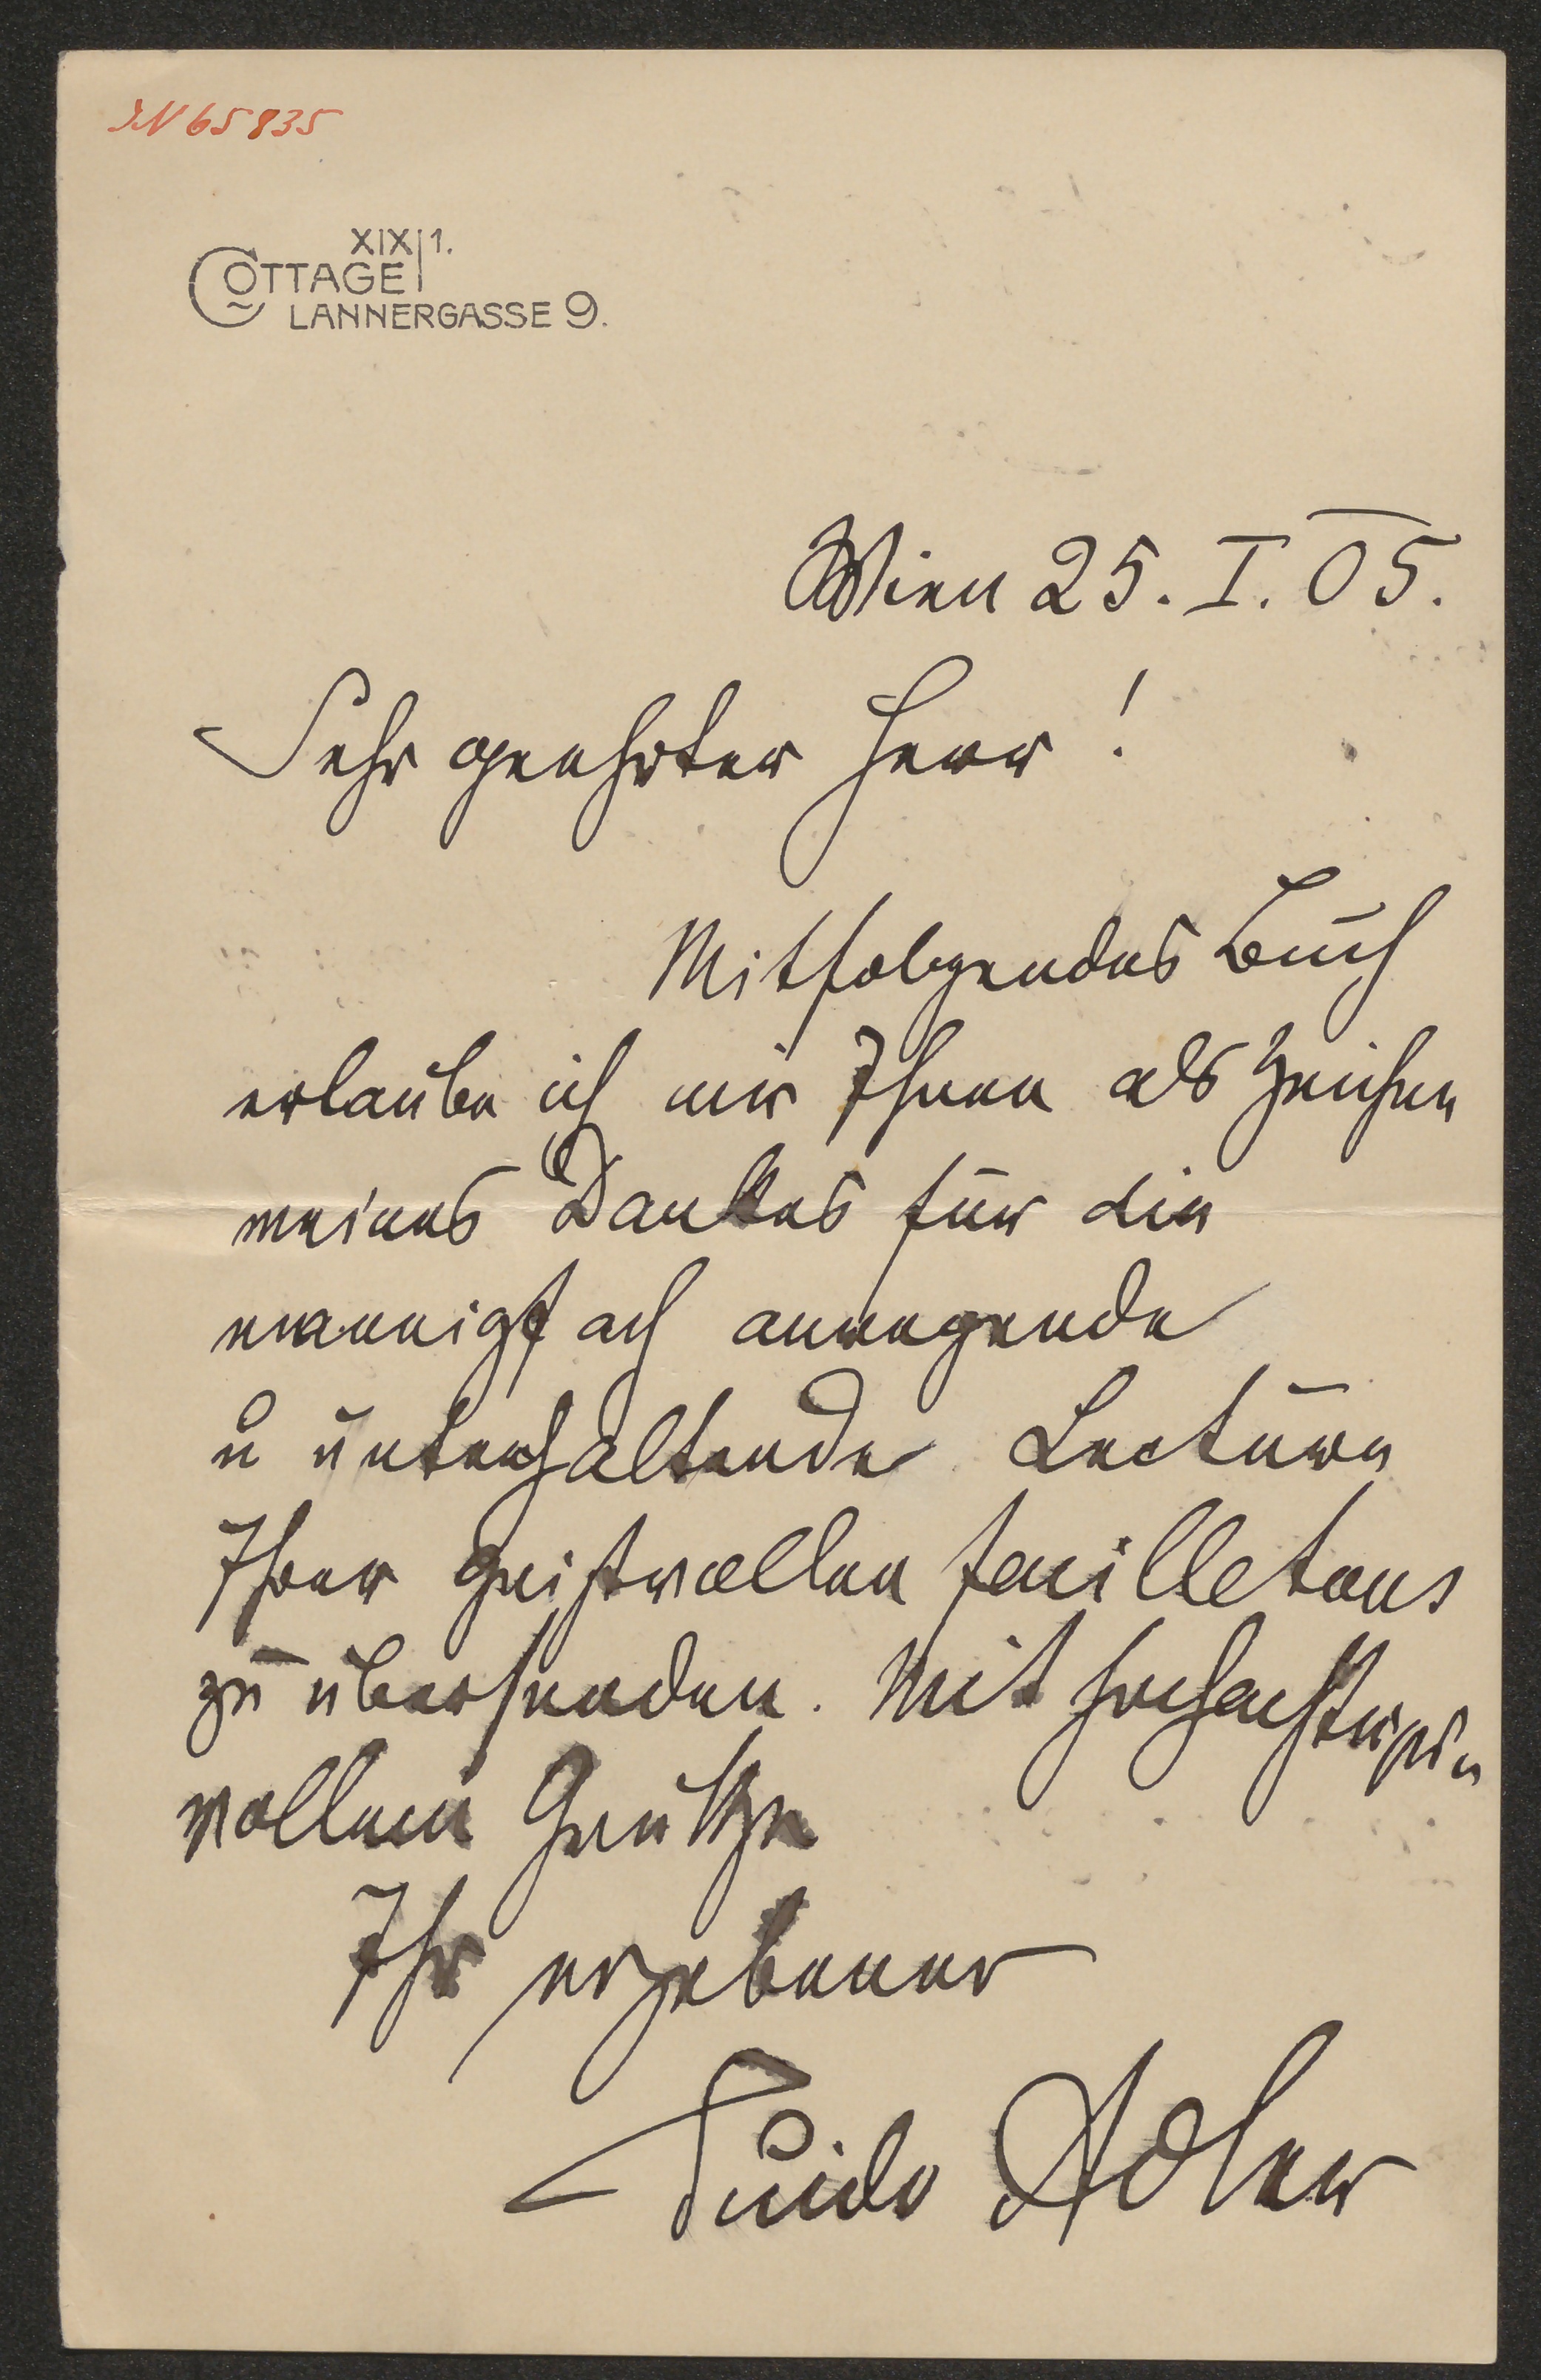 IN 65835
XIX|1.
COTTAGE
LANNERGASSE 9.
Wien 25. I. 05.
Sehr geehrter Herr!
Mitfolgendes Buch
erlaube ich mir Ihnen als Zeichen
meines Dankes für die
mannigfach anregende
u unterhaltende Lecture
Ihrer geistvollen feuilletons
zu übersenden. Mit hochachtungs
vollem Gruße
Ihr ergebener
Guido Adler